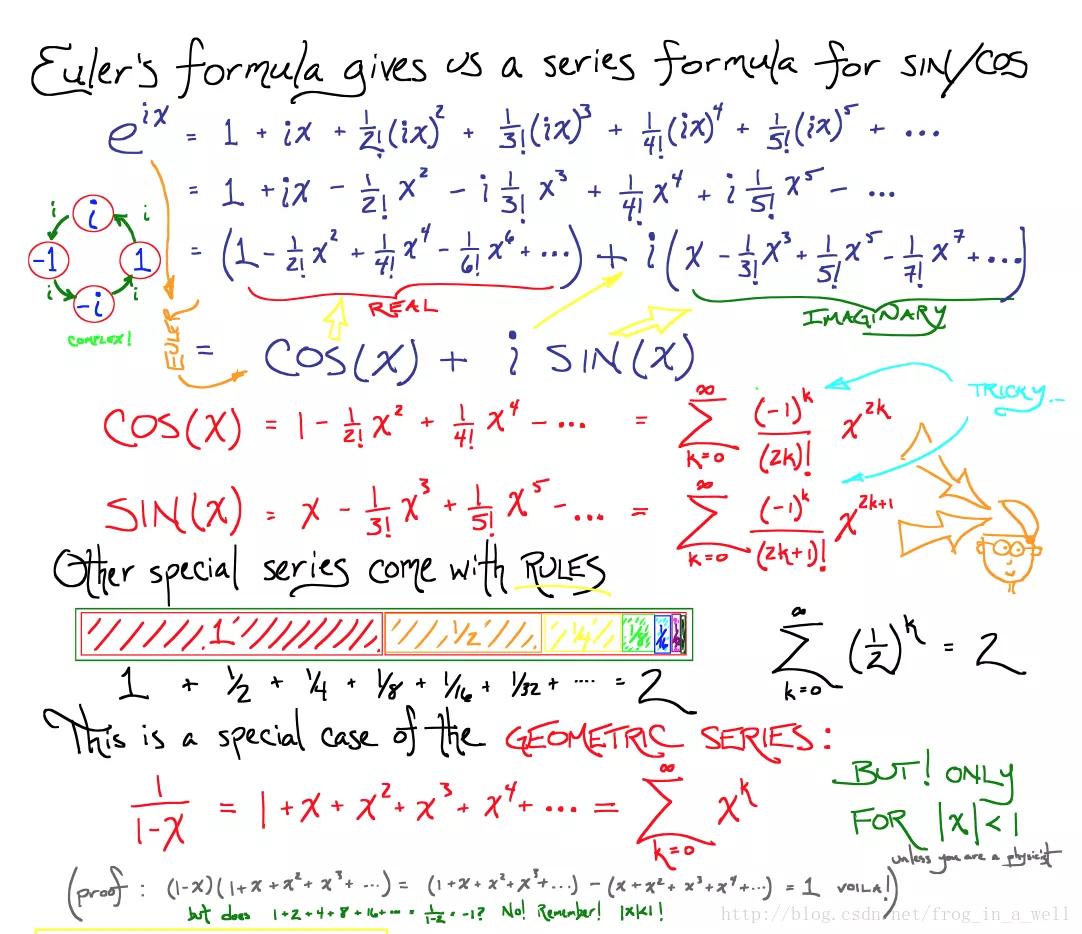 Euler's formula gives us a series formula for SIN/COS
e^{ix} = 1 + ix + 1/2!(ix)^2 + 1/3!(ix)^3 + 1/4!(ix)^4 + 1/5!(ix)^5 + ...
= 1 + ix - 1/2! x^2 - i 1/3! x^3 + 1/4! x^4 + i 1/5! x^5 - ...
= (1 - 1/2! x^2 + 1/4! x^4 - 1/6! x^6 + ...) + i(x - 1/3! x^3 + 1/5! x^5 - 1/7! x^7 + ...)
REAL
IMAGINARY
i
i i
-1 1
i i
-i
COMPLEX!
EULER
= COS(x) + i SIN(x)
TRICKY...
COS(x) = 1 - 1/2! x^2 + 1/4! x^4 - ... = ∑_{k=0}^{∞} (-1)^k/(2k)! x^{2k}
SIN(x) = x - 1/3! x^3 + 1/5! x^5 - ... = ∑_{k=0}^{∞} (-1)^k/(2k+1)! x^{2k+1}
Other special series come with RULES
1 1/2 1/4 1/8 1/16
1 + 1/2 + 1/4 + 1/8 + 1/16 + 1/32 + .... = 2
∑_{k=0}^{∞} (1/2)^k = 2
This is a special case of the GEOMETRIC SERIES:
1/(1-x) = 1 + x + x^2 + x^3 + x^4 + ... = ∑_{k=0}^{∞} x^k
BUT! ONLY
FOR |x| < 1
unless you are a physicist
(proof : (1-x)(1+x+x^2+x^3+...) = (1+x+x^2+x^3+...) - (x+x^2+x^3+x^4+...) = 1 VOILA!)
but does 1+2+4+8+16+... = 1/(1-2) = -1? No! Remember! |x|<1!
http://blog.csdn.net/frog_in_a_well